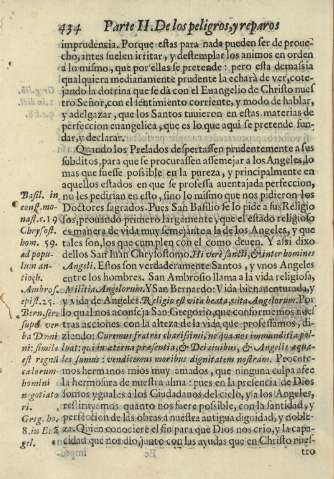 434 Parte II. De los peligros, y reparos
imprudencia. Porque estas para nada pueden ser de proue-
cho, antes suelen irritar, y destemplar los animos en orden
a lo mismo, que por ellas se pretende: pero esta demasia
qualquiera mediariamente prudente la echarà de ver, cote-
jando la dotrina que se dà con el Euangelio de Christo nues-
tro Señor, con el sentimiento corriente, y modo de hablar,
y adelgazar, que los Santos tuuieron en estas materias de
perfeccion euangelica, que es lo que aqui se pretende fun-
dar, y declarar.
Quando los Prelados despertassen prudentemente a sus
subditos, para que se procurassen assemejar a los Angeles, lo
mas que fuesse possible en la pureza, y principalmente en
aquellos estados en que se professa auentajada perfeccion,
no les pedirian en esto, sino lo mismo que nos pidieron los
Doctores sagrados. Pues San Basilio se lo pide a su Religio
los, prouando primero largamente, que el estado religioso
es manera de vida muy semejante a la de los Angeles, y que
tales son, los que cumplen con el como deuen. Y assi dixo
dellos San Iuan Chrysostomo. Hi verè sancti, & inter homines
Angeli. Estos son verdaderamente Santos, y vnos Angeles
entre los hombres. San Ambrosio llama a la vida religiosa,
Militia Angelorum. Y San Bernardo: Vida bienauenturada, y
y vida de Angeles. Religio est vita beata, vita Angelorum. Por
lo qual nos aconseja San Gregorio, que conformemos nues-
tras acciones con la alteza de la vida que professamos, di-
ziendo: Curemus fratres charissimi, ne qua nos immunditia pol-
luat: qui in æterna præscientia, & Dei ciuibus, & Angelis aqua-
les sumus: vendicemus moribus dignitatem nostram. Procure-
mos hermanos mios muy amados, que ninguna culpa afee
la hermosura de nuestra alma: pues en la presencia de Dios
somos yguales a los Ciudadanos del cielo, y a los Angeles,
restituyamos quanto nos fuere possible, con la santidad, y
perfeccion de las obras a nuestra antigua dignidad, y noble-
za. Quien conociere el fin para que Dios nos crio, y la capa-
cidad que nos dio, junto con las ayudas que en Christo nues-
tro
Basil. in
cons. mo-
nast. c. 19
Chrysost.
hom. 59.
ad popu-
lum an-
tioch.
Ambros.
epist. 25.
Bern. ser.
supr. ver-
ba Domi
ni: simile
est regnũ
cælorum
homini
negotiato
ri.
Greg. ho.
8. in Euã
gel.